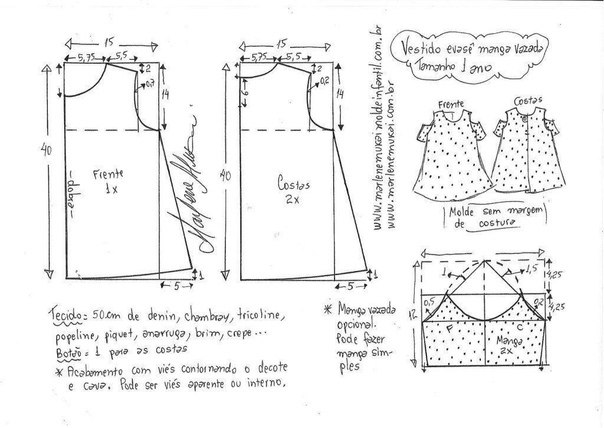 Vestido evasê manga vazada
Tamanho 1 ano
15
5,75
5,5
2
0,7
14
40
Frente
1x
-dobra-
1
5
15
5,75
5,5
2
0,2
6
14
40
Costas
2x
1
5
Marlene Mukai
www.marlenemukaimoldeinfantil.com.br
www.marlenemukai.com.br
Frente
Costas
Molde sem margem
de costura
1
1,5
4,25
0,5
0,2
4,25
12
F
C
Manga
2x
Tecido = 50cm de denin, chambray, tricoline,
popeline, piquet, anarruga, brim, crepe...
Botão = 1 para as costas
* Acabamento com viés contornando o decote
e cava. Pode ser viés aparente ou interno.
* Manga vazada
opcional.
Pode fazer
manga sim-
ples